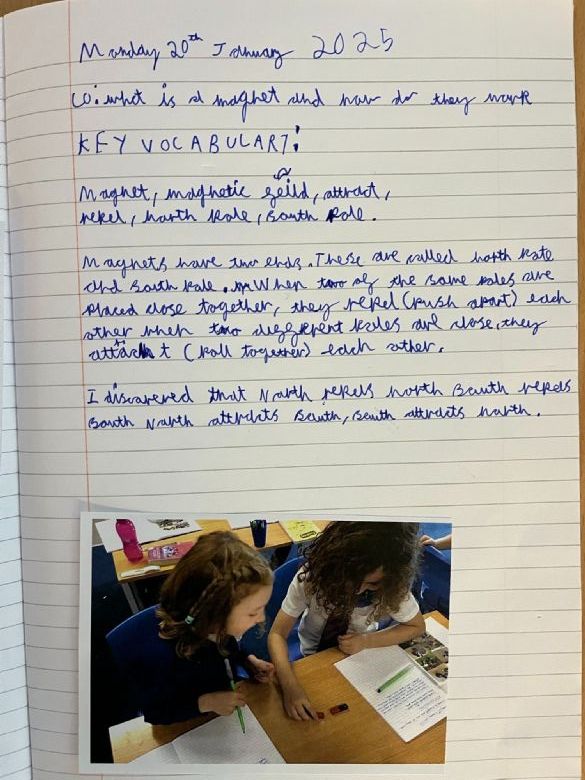 Monday 20th January 2025
LO: what is a magnet and how do they work
KEY VOCABULARY:
Magnet, magnetic feild, attract,
repel, north pole, south pole.
Magnets have two ends. These are called north pole
and south pole. When two of the same poles are
placed close together, they repel (push apart) each
other when two different poles are close, they
attract (pull together) each other.
I discovered that North repels north South repels
South North attracts South, south attracts north.